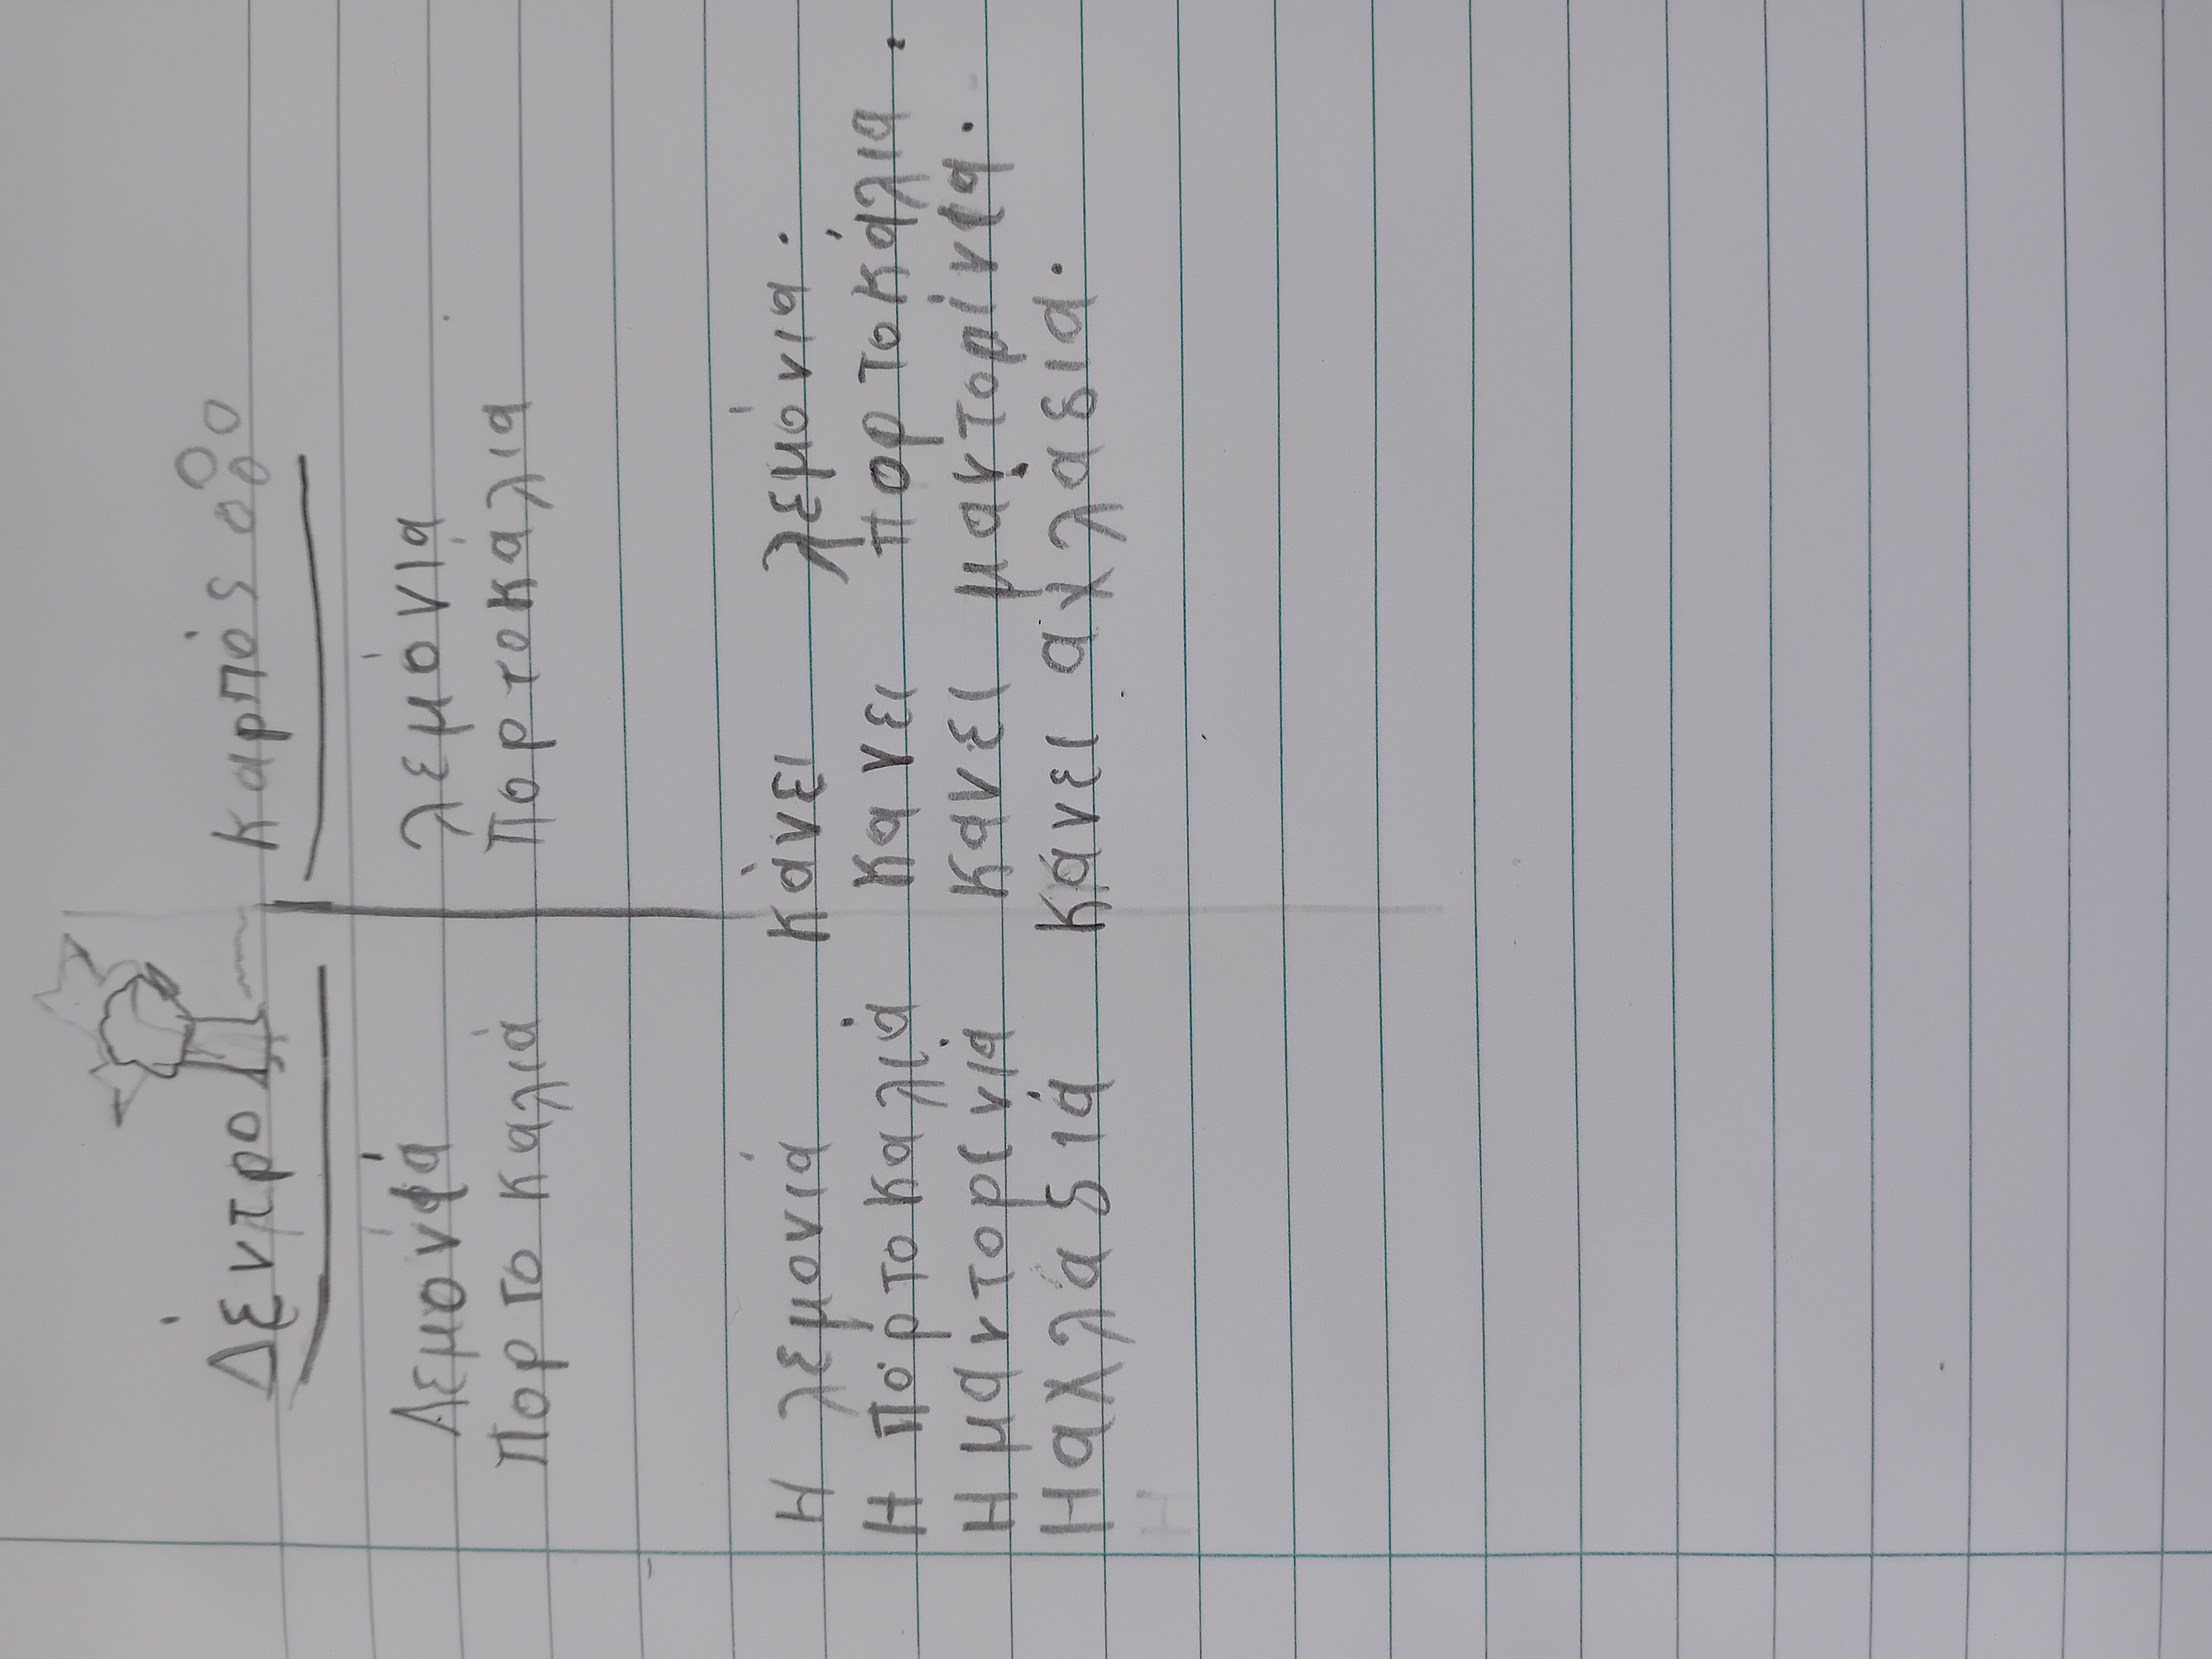 Δέντρο Καρπός
Λεμονιά λεμόνια
Πορτοκαλιά Πορτοκαλια
Η λεμονιά κάνει λεμόνια.
Η πορτοκαλιά κανει πορτοκάλια.
Η μαντορινιά κανει μαντορίνια.
Η αχλαδιά κάνει αχλαδια.
Η